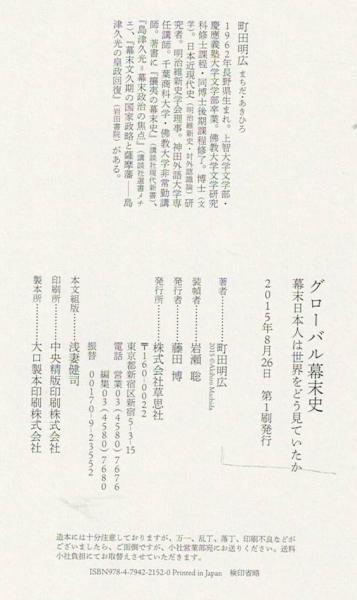 町田明広 まちだ・あきひろ
1962年長野県生まれ。上智大学文学部・
慶應義塾大学文学部卒業。佛教大学文学研究
科修士課程・同博士後期課程修了。博士(文
学)。日本近現代史(明治維新史・対外認識論)研
究者。明治維新史学会理事。神田外語大学専
任講師。千葉商科大学・佛教大学非常勤講
師。著書に『攘夷の幕末史』(講談社現代新書)、
『島津久光=幕末政治の焦点』(講談社選書メチ
エ)、『幕末文久期の国家政略と薩摩藩――島
津久光の皇政回復』(岩田書院)がある。
グローバル幕末史
幕末日本人は世界をどう見ていたか
2015年8月26日 第1刷発行
著者…………町田明広
2015 © Akihiro Machida
装幀者…………岩瀬 聡
発行者…………藤田 博
発行所…………株式会社草思社
〒160-0022
東京都新宿区新宿5-3-15
電話 営業03(4580)7676
編集03(4580)7680
振替 00170-9-23552
本文組版…………浅妻健司
印刷所…………中央精版印刷株式会社
製本所…………大口製本印刷株式会社
造本には十分注意しておりますが、万一、乱丁、落丁、印刷不良などが
ございましたら、ご面倒ですが、小社営業部宛にお送りください。送料
小社負担にてお取替えさせていただきます。
ISBN978-4-7942-2152-0 Printed in Japan 検印省略